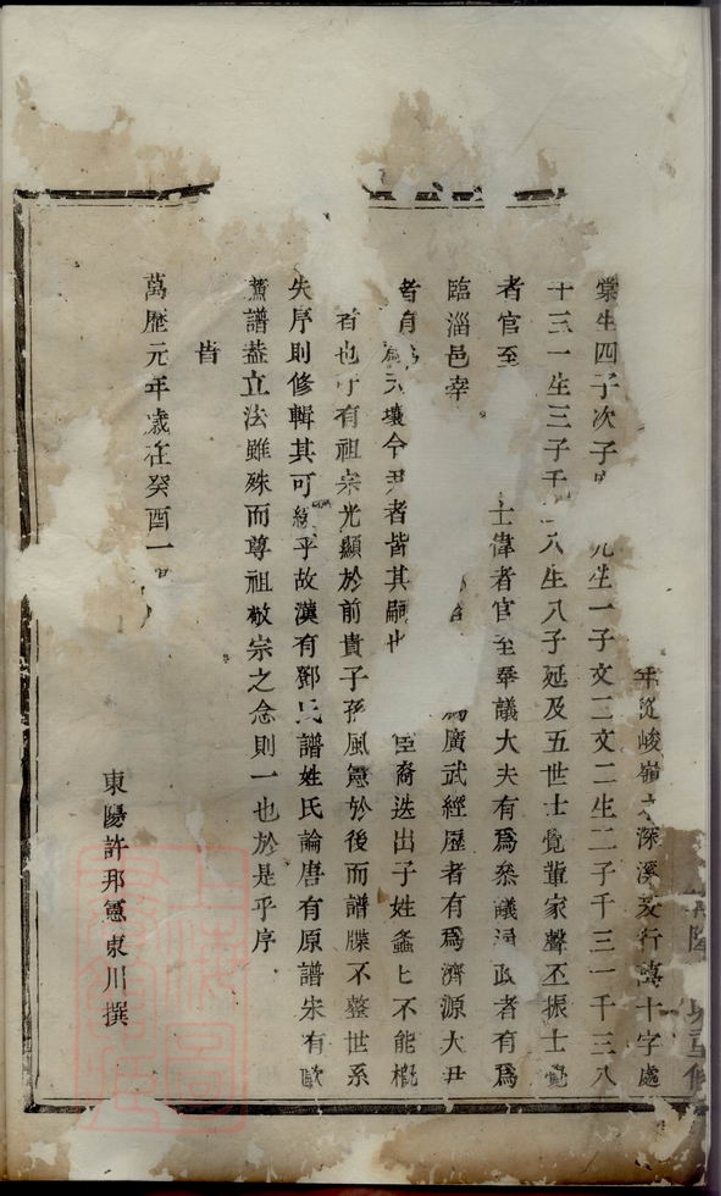 年從峻嶺之深溪友行萬十字處
棠生四子次子 九生一子文二文二生二子千三一千三八
十三一生三子千 八生八子延及五世士覺輩家聲丕振士覺
者官至 士偉者官至奉議大夫有爲叅議通政者有爲
臨淄邑宰 爲廣武經歷者有爲濟源大尹
者有 天壤今尹者皆其嗣也 臣裔迭出子姓螽匕不能概
者也 有祖宗光顯於前貴子孫風憲於後而譜牒不整世系
失序則修輯其可 乎故漢有鄧氏譜姓氏論唐有原譜宋有歐
蘇譜葢立法雖殊而尊祖敬宗之念則一也於是乎序
旹
萬歷元年歲在癸酉一
東陽許邦憲東川撰